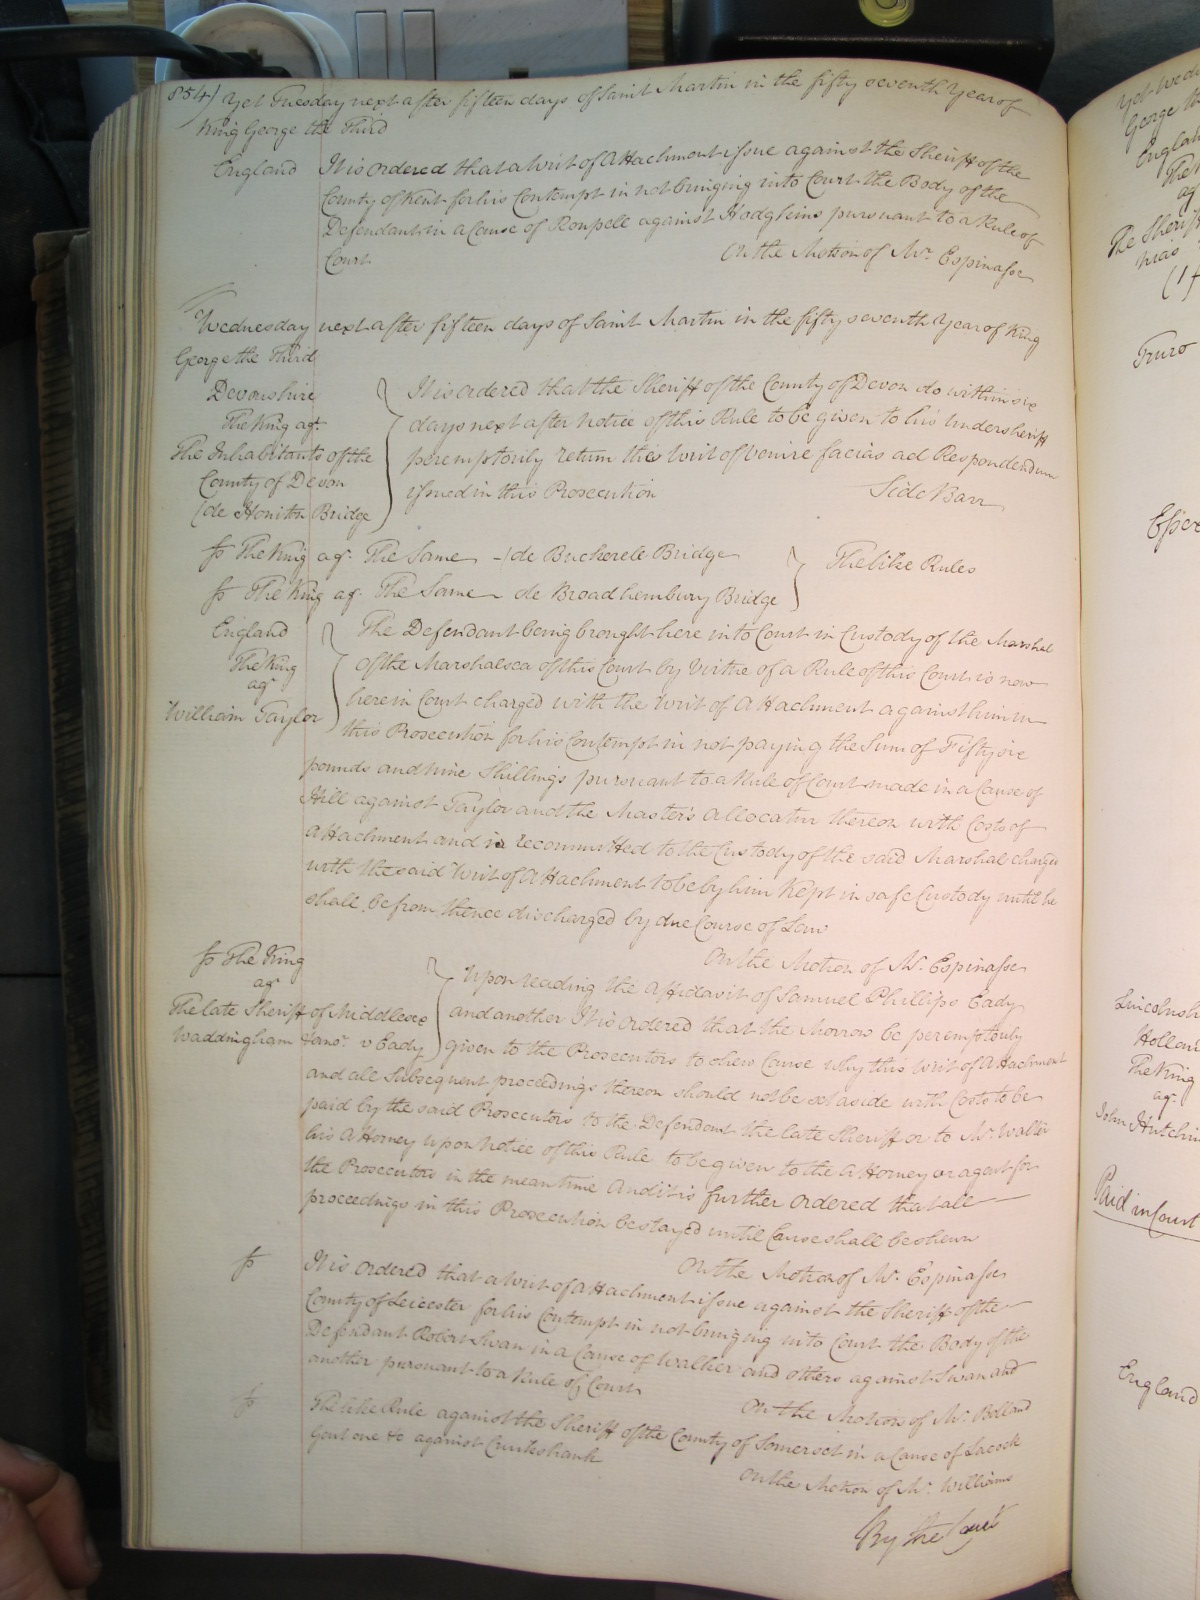 854) Yet Tuesday next after fifteen days of Saint Martin in the fifty seventh Year of
King George the Third
England It is ordered that a Writ of Attachment issue against the Sheriff of the
County of Kent for his Contempt in not bringing into Court the Body of the
Defendant in a Cause of Roupell against Hodgkins pursuant to a Rule of
Court On the Motion of Mr. Espinasse
Wednesday next after fifteen days of Saint Martin in the fifty seventh Year of King
George the Third
Devonshire
The King agt.
The Inhabitants of the
County of Devon
(de Honiton Bridge)
It is ordered that the Sheriff of the County of Devon do within six
days next after Notice of this Rule to be given to his Undersheriff
peremptorily return the Writ of venire facias ad Respondendum
issued in this Prosecution Side Barr
fs The King agt. The Same - (de Buckerele Bridge
fs The King agt. The Same - de Broadhembury Bridge
The like Rules
England
The King
agt
William Taylor
The Defendant being brought here into Court in Custody of the Marshal
of the Marshalsea of this Court by Virtue of a Rule of this Court is now
here in Court charged with the Writ of Attachment against him in
this Prosecution for his Contempt in not paying the Sum of Fifty six
pounds and nine Shillings pursuant to a Rule of Court made in a Cause of
Hill against Taylor and the Master's Allocatur thereon with Costs of
Attachment and is recommitted to the Custody of the said Marshal charged
with the said Writ of Attachment to be by him Kept in safe Custody until he
shall be from thence discharged by due Course of Law
On the Motion of Mr. Espinasse
fs The King
agt
The late Sheriff of Middlesex
Waddingham & anor. v Eady
Upon reading the Affidavit of Samuel Phillips Eady
and another It is Ordered that the Morrow be peremptorily
given to the Prosecutors to shew Cause why this Writ of Attachment
and all Subsequent proceedings thereon should not be set aside with Costs to be
paid by the said Prosecutors to the Defendant the late Sheriff or to Mr. Walter
his Attorney upon Notice of this Rule to be given to the Attorney or agent for
the Prosecutors in the mean time And it is further Ordered that all
proceedings in this Prosecution be stayed until Cause shall be shewn
On the Motion of Mr. Espinasse
fs It is Ordered that a Writ of Attachment issue against the Sheriff of the
County of Leicester for his Contempt in not bringing into Court the Body of the
Defendant Robert Swan in a Cause of Walker and others against Swan and
another pursuant to a Rule of Court On the Motion of Mr. Bolland
fs The like Rule against the Sheriff of the County of Somerset in a Cause of Lacock
Gent one &c against Cruikshank
On the Motion of Mr. Williams
By the Court
Yet Wed
George th
England
The
ag
The Sheriff
Truro
Lincolnsh
Hollan
The King
agt.
John Hutchin
Paid in Court
England